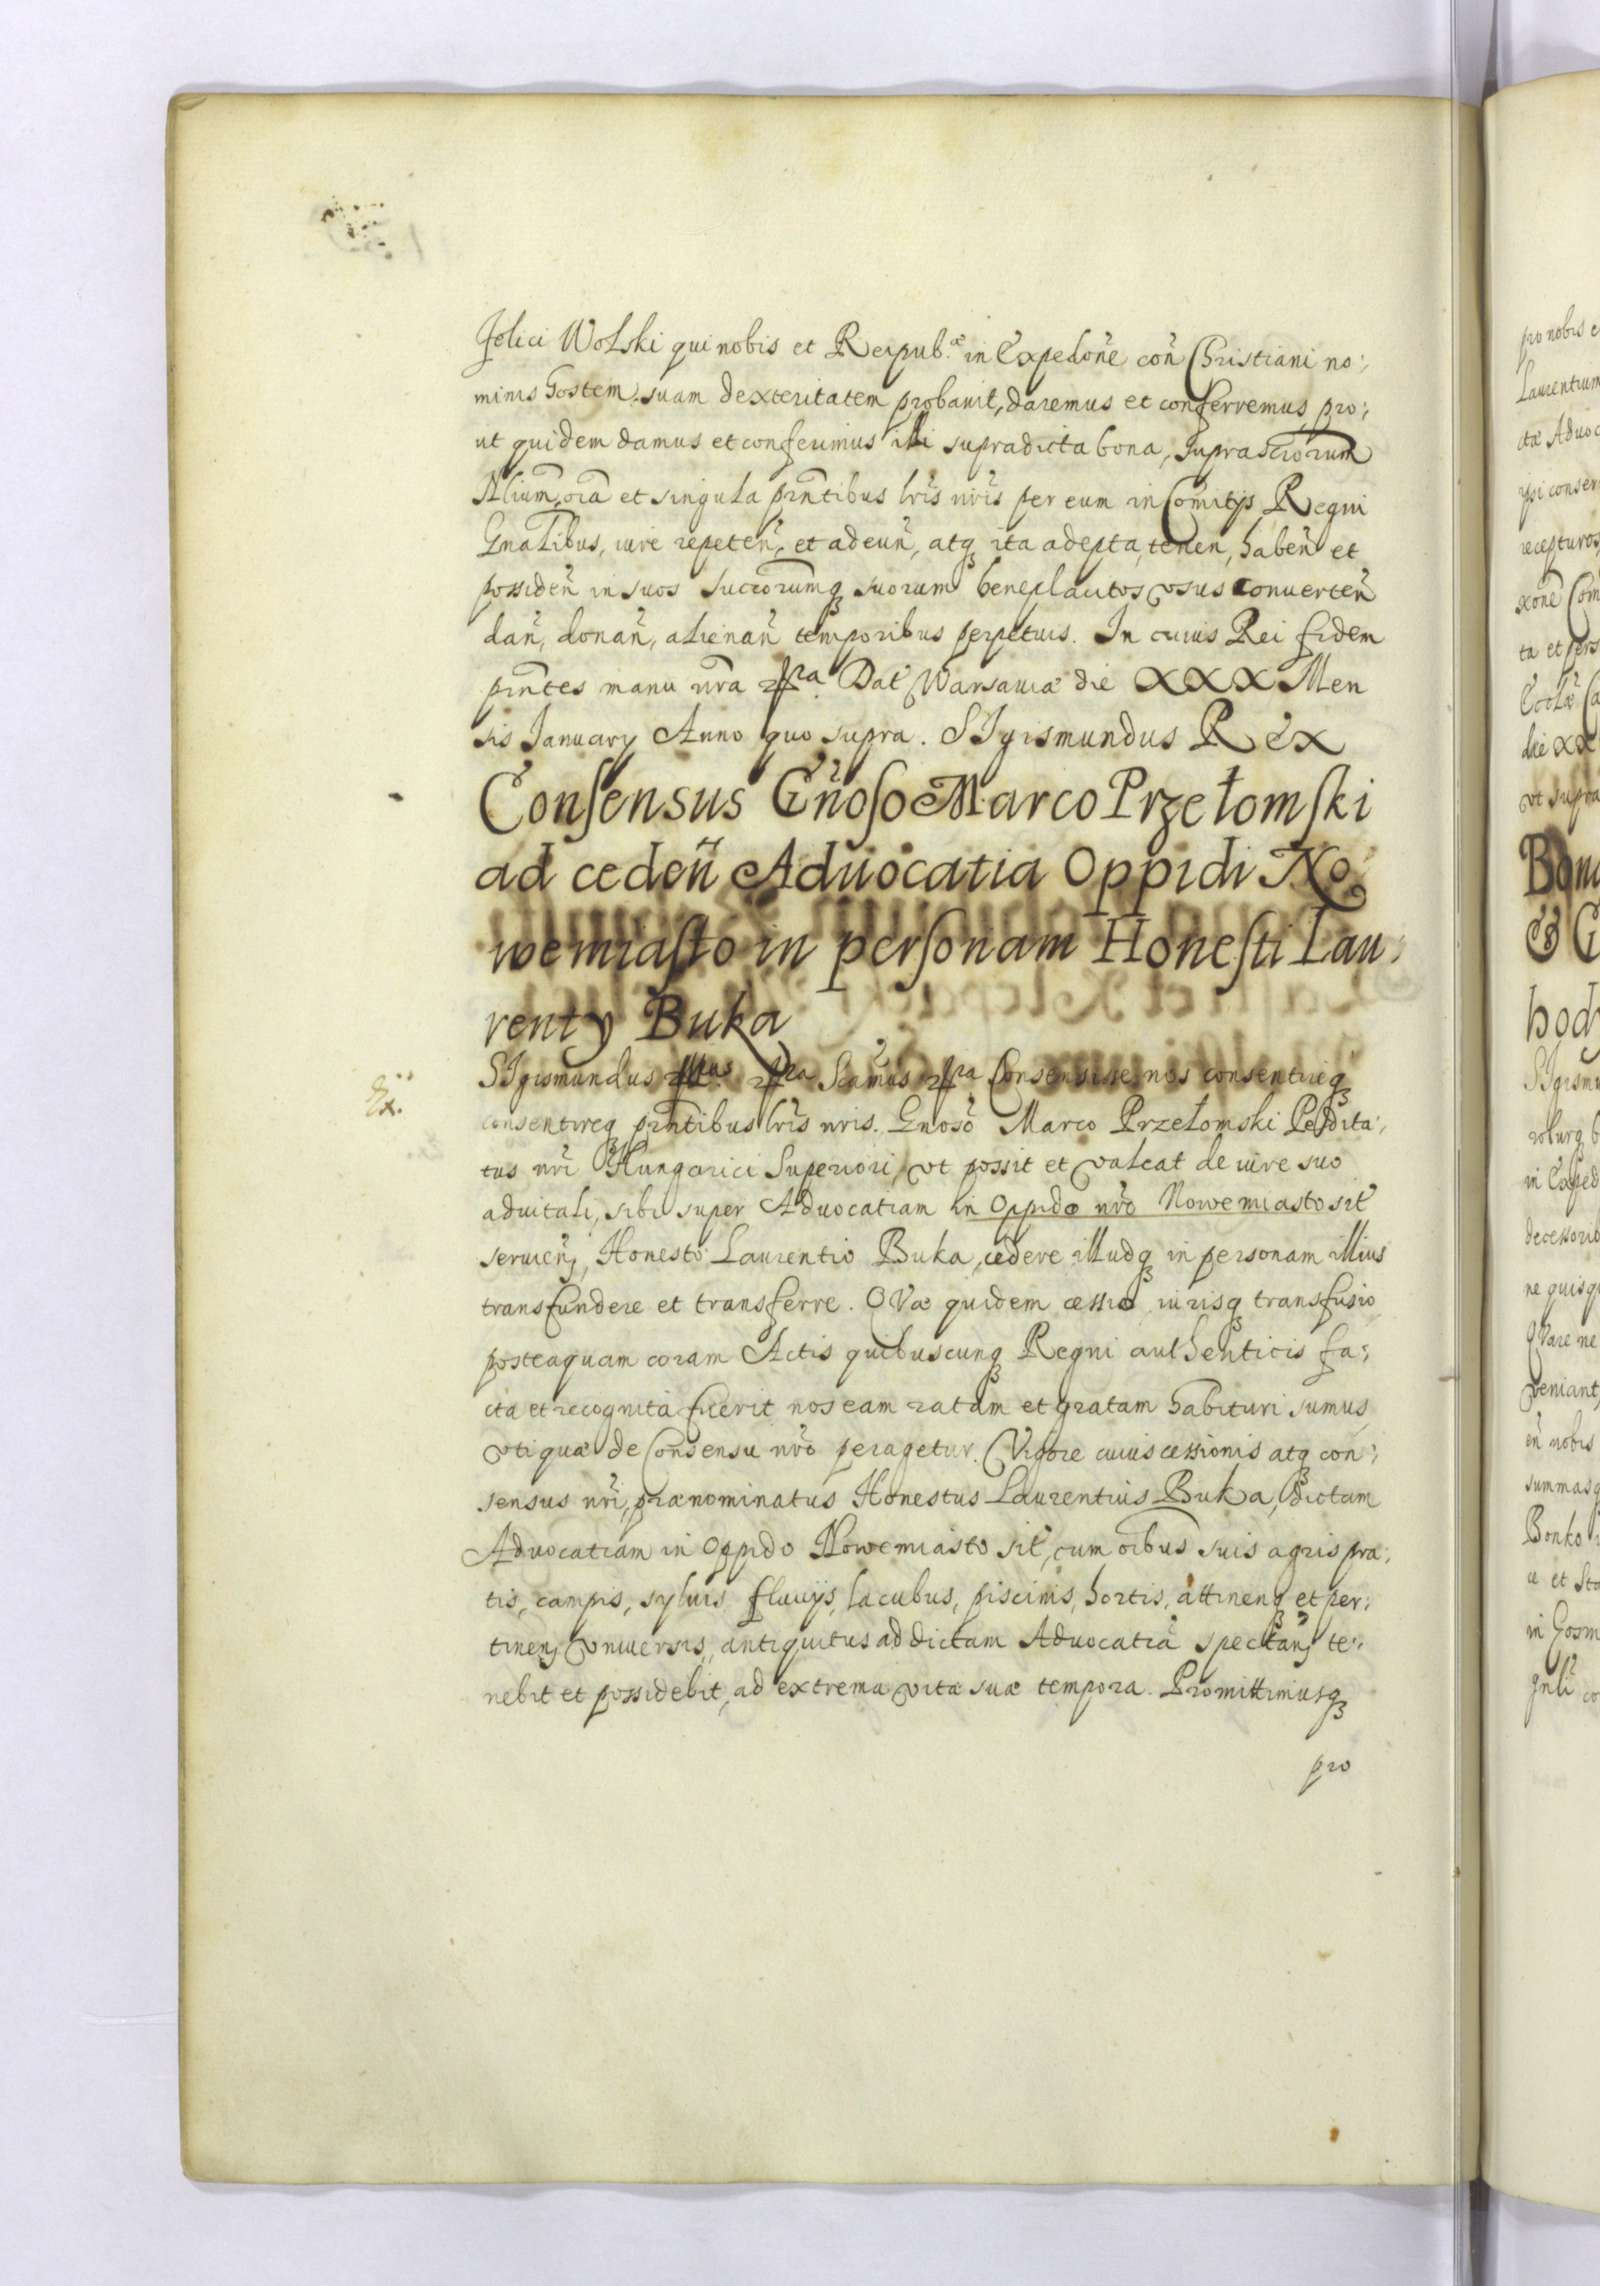 Felici Wolski qui nobis et Reipub.æ in Expedõne con̄ Christiani no:
minis hostem suam dexteritatem probauit, daremus et conferremus, pro:
ut quidem damus et conferimus illi supradicta bona, suprascr̄orum
Nlium, oīa et singula pr̄ntibus lr̄is nr̄is per eum in Comitijs Regni
Gnalibus, iure repeten̄, et adeun̄, atq̨ ita adepta, tenen̄, haben̄ et
possiden̄ in suos succōrumq̨ suorum beneplacitos vsus conuerten̄
dan̄, donan̄, alienan̄ temporibus perpetuis. In cuius Rei fidem
pr̄ntes manu nr̄a etc. Dat̄ Warsauiæ die XXX Men
sis January Anno quo supra. SIgismundus Rex
Consensus Gn̄oso Marco Przełomski
ad ceden̄ Aduocatia Oppidi No
wemiasto in personam Honesti Lau:
renty Buka
SIgismundus IIIus etc. Scāmus etc. Consensisse nos consentireq̨
consentireq̨ pr̄ntibus lr̄is nr̄is. Gnoso Marco Przełomski Peddita:
tus nr̄i Hungarici Superiori, vt possit et valeat de iure suo
aduitali, sibi super Aduocatiam in Oppido nr̄o Nowemiasto sit̄
seruien̄, Honesto Laurentio Buka, cedere illudq̨ in personam illius
transfundere et transferre. QVæ quidem cessio, iurisq̨ transfusio,
posteaquam coram Actis quibuscunq̨ Regni authenticis fa:
cta et recognita fuerit nos eam ratam et gratam habituri sumus
vti quæ de Consensu nr̄o peragetur. Vigore cuius cessionis atq̨ con:
sensus nr̄i, prænominatus Honestus Laurentius Buka, dictam
Aduocatiam in Oppido Nowemiasto sit̄, cum oībus suis agris pra:
tis, campis, syluis fluuijs, lacubus, piscinis, hortis, attinenq̨ et per:
tinen̄ vniuersis, antiquitus ad dictam Aduocatiā spectan̄ te:
nebit et possidebit, ad extrema vitæ suæ tempora. Promittimusq̨
pro
Ex.